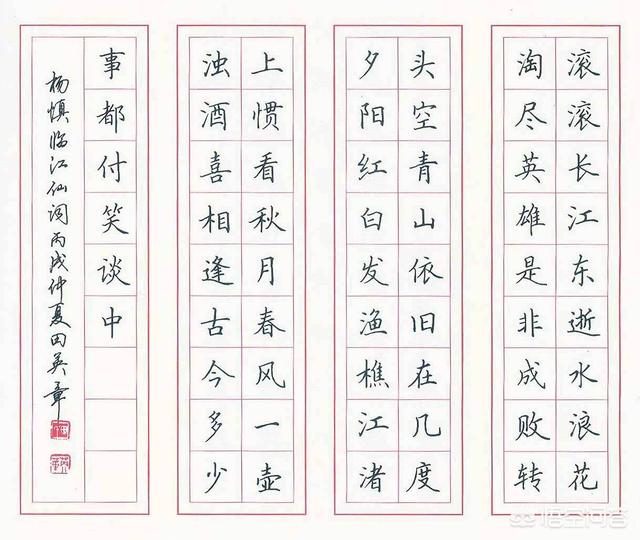 滚滚长江东逝水浪花
淘尽英雄是非成败转
头空青山依旧在几度
夕阳红白发渔樵江渚
上惯看秋月春风一壶
浊酒喜相逢古今多少
事都付笑谈中
杨慎临江仙词丙戌仲夏田英章
悟空问答